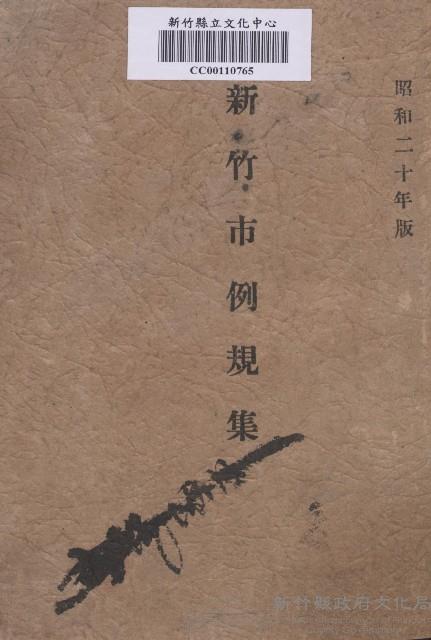 新竹縣立文化中心
CC00110765
昭和二十年版
新竹市例規集
新竹縣政府文化局